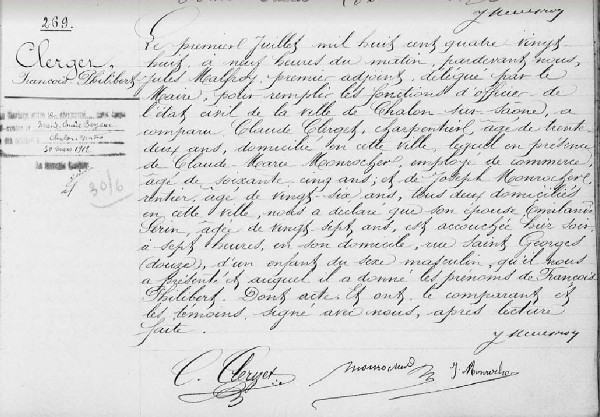 269.
Clerget
François Philibert
30/6
Le premier Juillet mil huit cent quatre vingt
huit, à neuf heures du matin, pardevant nous,
Jules premier adjoint, délégué par le
Maire, pour remplir les fonctions d'officier de
l'état civil de la ville de Chalon-sur-Saône, a
comparu Claude Clerget, charpentier, âgé de trente
deux ans, domicilié en cette ville, lequel en présence
de Claude-Marie Monrocher, employé de commerce,
âgé de soixante-cinq ans; et de Joseph Monrocher,
rentier, âgé de vingt-six ans, tous deux domiciliés
en cette ville, nous a déclaré que son épouse
âgée de vingt sept ans, est accouchée hier soir
à sept heures, en son domicile, rue Saint Georges
(douze), d'un enfant du sexe masculin, qu'il nous
a présenté et auquel il a donné les prénoms de François
Philibert. Dont acte. Et ont, le comparant et
les témoins, signé avec nous, après lecture
faite.
C. Clerget J. Monrocher